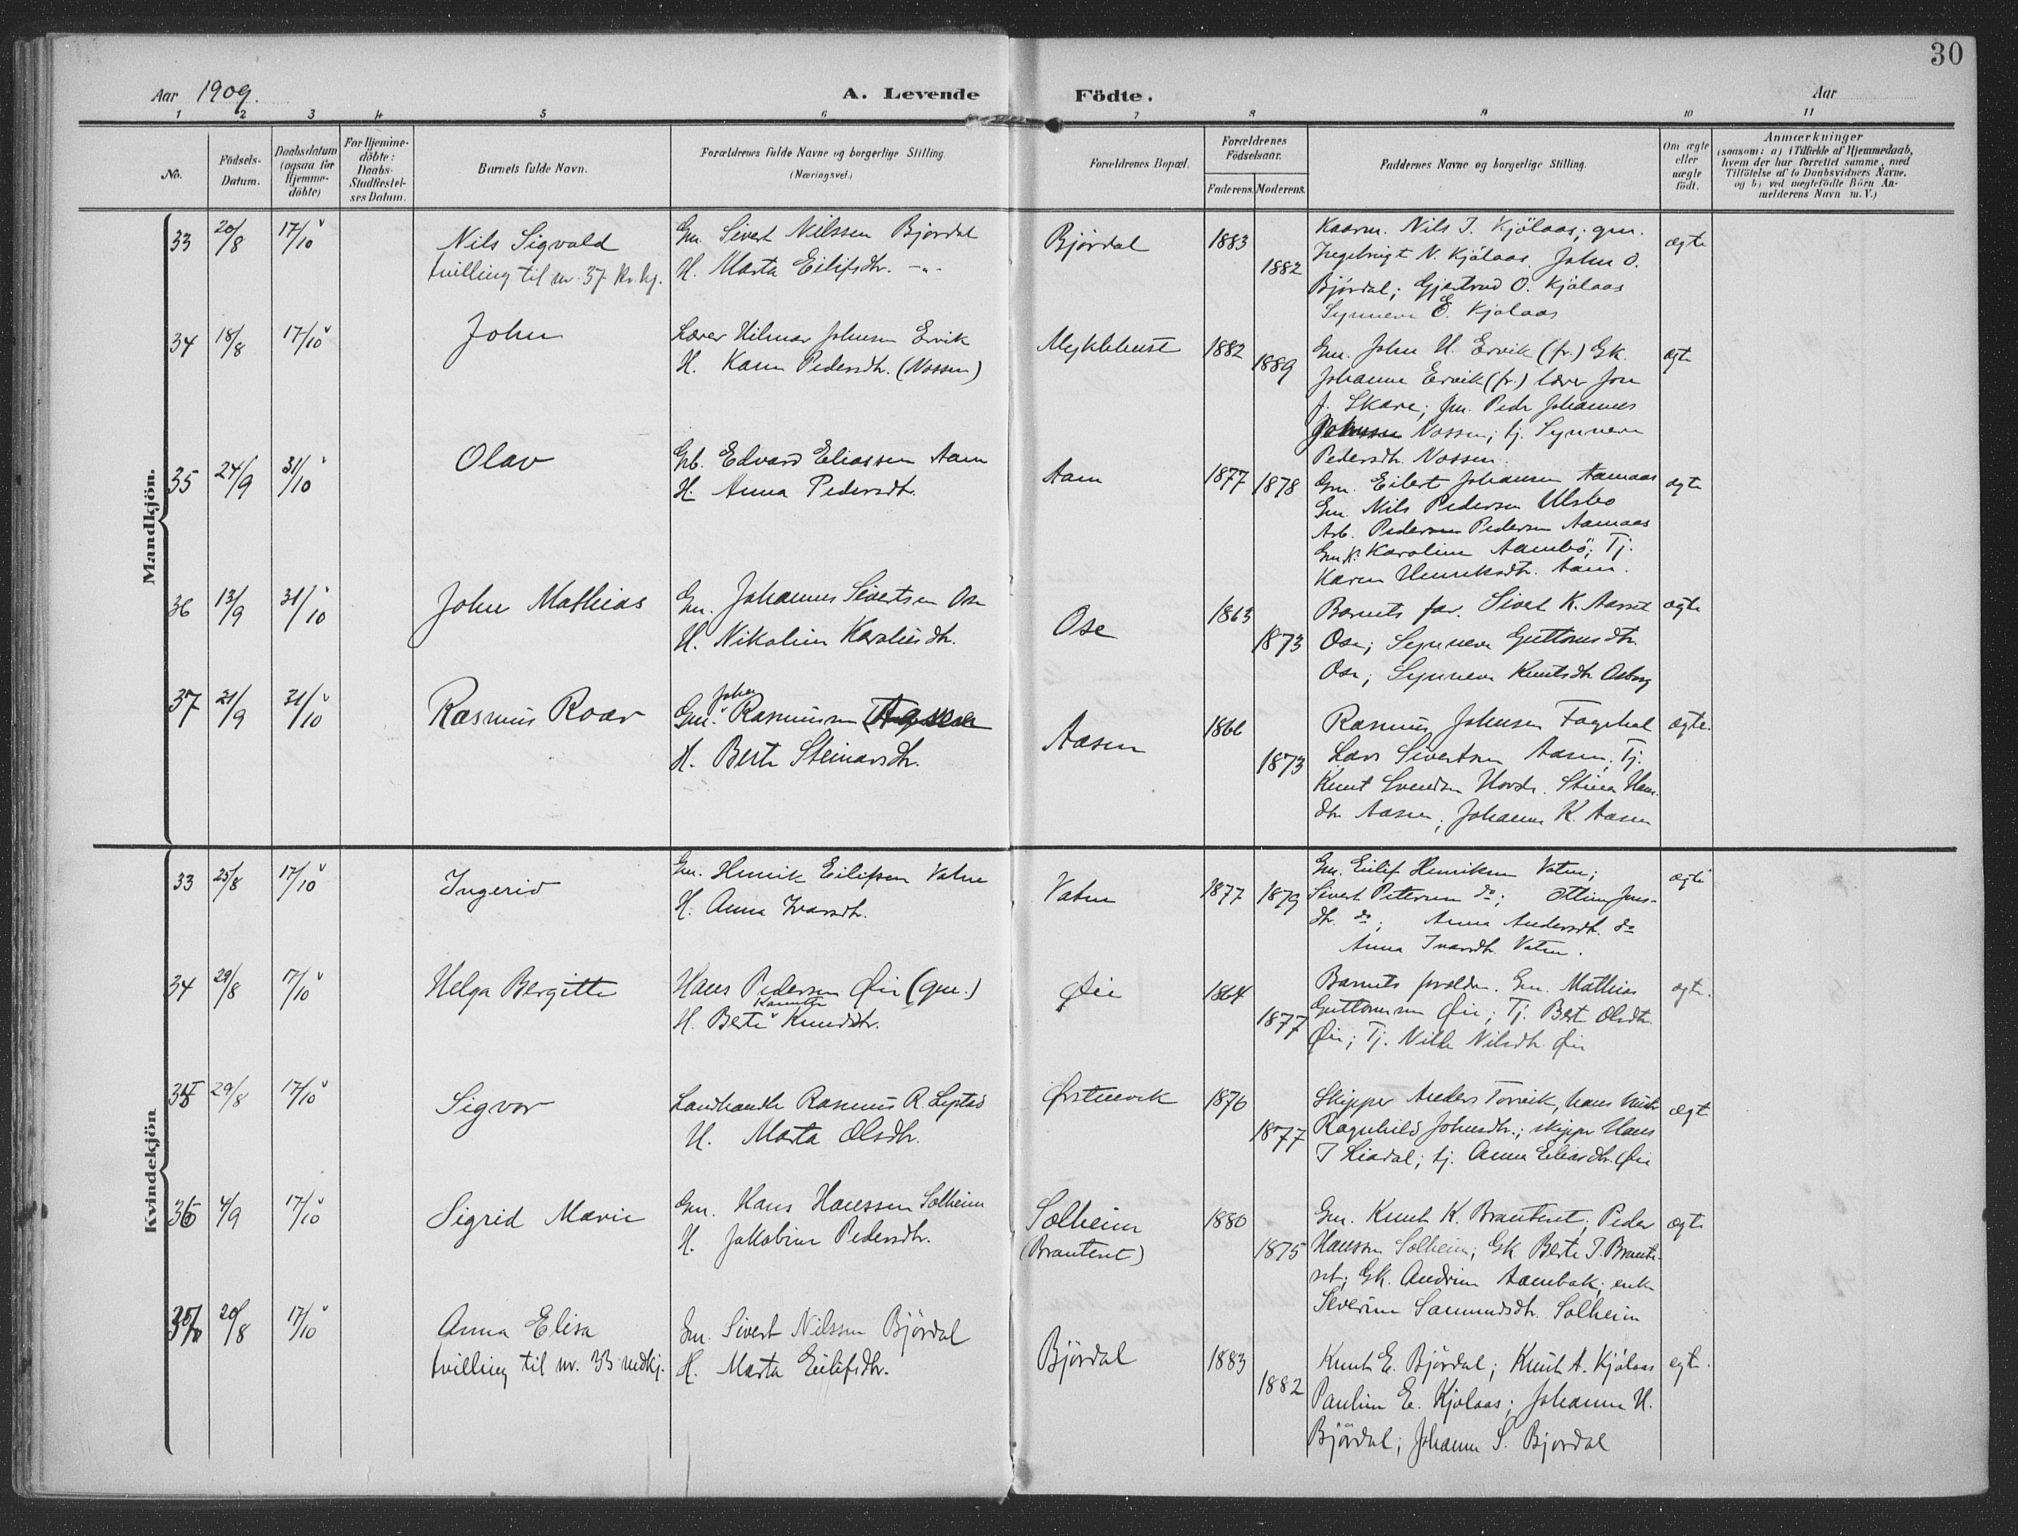 30
Aar 1909.
A. Levende Födte.
Aar
1 2 3 4 5 6 7 8 9 10 11
No.
Födsels-Datum.
Daabsdatum (ogsaa for Hjemme-döbte)
For Hjemme-döbte: Daabs-Stadfæstel-ses Datum.
Barnets fulde Navn.
Forældrenes fulde Navne og borgerlige Stilling (Næringsvei.)
Forældrenes Bopæl.
Forældrenes Födselsaar.
Faderens. Moderens.
Faddernes Navne og borgerlige Stilling.
Om ægte eller uægte födt.
Anmærkninger
(saasom: a) i Tilfælde af Hjemmedaab,
hvem der har forrettet samme, med
Tilföielse af to Daabsvidners Navne.
og b) ved uægtefödte Börn An-
melderens Navn m. V.)
Mandkjön.
33 20/8 17/10 Nils Sigvald
tvilling til nr. 37 kv.kj.
Gm. Sivert Nilssen Bjørdal
H. Marta Eilifsdtr. -"-
Bjørdal 1883 1882
Kaarm. Nils I. Kjölaas; gm.
Ingebrigt N. Kjölaas, John O.
Bjørdal; Gjertrud O. Kjölaas
Synneva E. Kjölaas
ægte
34 18/8 17/10 John
Lærer Hilmar Johnsen Ervik
H. Karen Pedersdtr. (Vossen)
Myklebust 1882 1889
Gm. John H. Ervik (fr.) Gk.
Johanne Ervik (fr.) lærer Jon
J. Skare; gm. Peder Johannes
Vossen; tj. Synneva
Pedersdtr. Vossen.
ægte
35 24/9 31/10 Olav
Gb. Edvard Eliassen Aam
H. Anna Pedersdtr.
Aam 1877 1878
Gm. Eilert Johansen Aamaas
Gm. Nils Pedersen Ulsbo
Arb. Pedersen Pedersen Aamaas
Gmk. Karoline Aambø; Tj.
Karen Henriksdtr. Aam.
ægte
36 13/9 31/10 John Mathias
Gm. Johannes Sivertsen Ose
H. Nikoline Karolusdtr.
Ose 1863 1873
Barnets far. Sivert K. Aaset
Ose; Synneva Guttormsdtr
Ose; Synneva Knutsdtr Osborg
ægte
37 21/9 31/10 Rasmus Roar
Johan
Gm. Rasmussen
H. Berte Steinarsdtr.
Aasen 1866 1873
Rasmus Johnsen Fagerhol
Lars Sivertsen Aasen, Tj.
Knut Svendsen Hovde. Stina Hans-
dtr Aasen; Johanne K. Aasen
ægte.
Kvindekjön
33 25/8 17/10 Ingerid
Gm. Henrik Eilifsen Vatne
H. Anna Ivarsdtr.
Vatne 1877 1879
Gm. Eilif Henriksen Vatne;
Sivert Petersen do; Oline Jens-
dtr. do; Anna Andersdtr. do
Anna Ivarsdtr Vatne.
ægte
34 29/8 17/10 Helga Bergitte
Hans Pedersen Øie (gm.)
H. Berte Knudsdtr.
Øie 1864 1877
Barnets forældre. Gm. Mathias
Guttormsen Øie; Tj. Berte Olsdtr.
Øie; Tj. Nille Nilsdtr Øie
ægte.
35 29/8 17/10 Sigvor
Landhandler Rasmus R. Leptad
H. Marta Olsdtr.
Ørstenvik 1876 1877
Skipper Anders Torvik, hans hustr
Ragnhild Johnsdtr.; skipper Hans
J Liadal; tj. Anna Eliasdtr. Øie
ægte
36 4/9 17/10 Sigrid Marie
Gm. Hans Hanssen Solheim
H. Jakobine Pedersdtr.
Solheim
(Brauteset)
1880 1875
Gm. Knut K. Brauteset; Peder
Hanssen Solheim; Gk Berte I. Braute-
set; Gk. Andrine Aambak; enke
Severine Samundsdtr. Solheim
ægte
37 20/8 17/10 Anna Elisa
tvilling til nr. 33 mdkj.
Gm. Sivert Nilssen Bjørdal
H. Marta Eilifsdtr.
Bjørdal 1883 1882
Knut E. Bjørdal; Knut A. Kjölaas
Pauline E. Kjölaas; Johanne H.
Bjørdal; Johanne S. Bjørdal
ægte.